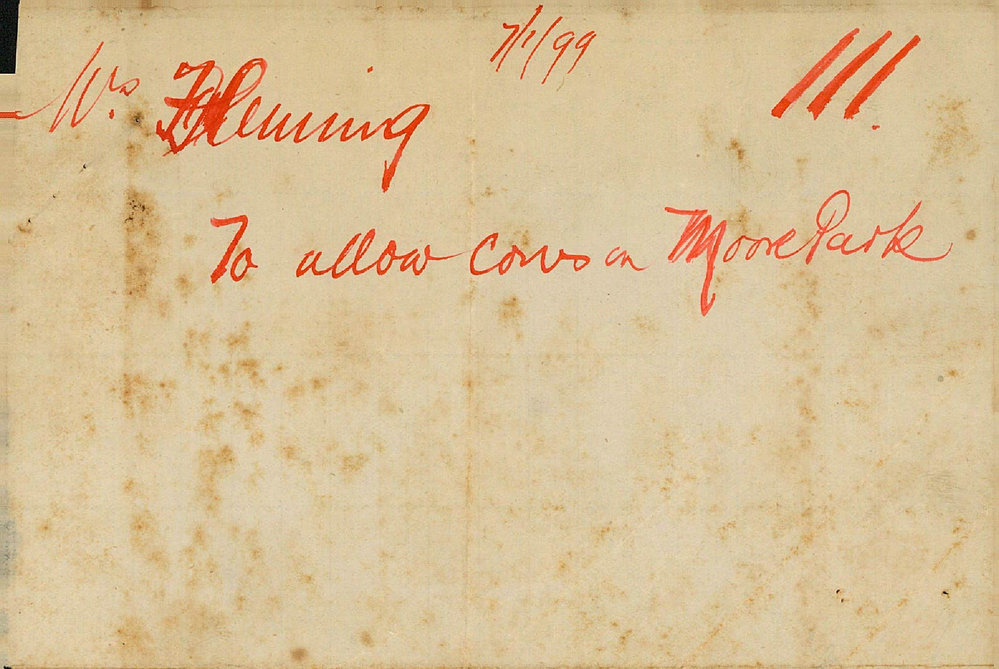 7/1/99 111.
Mrs Fleming
To allow cows on Moore Park